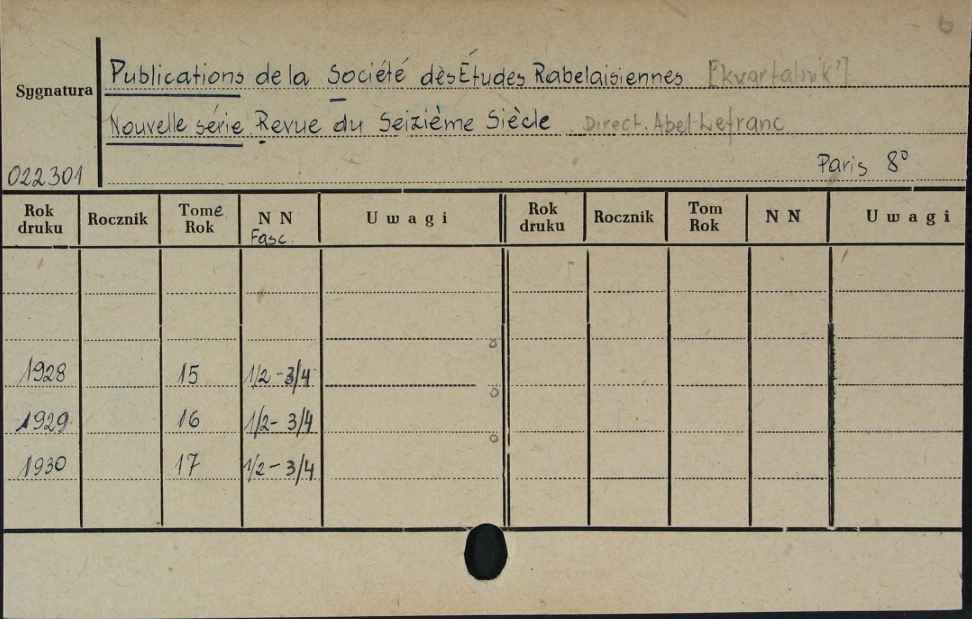 6
Publications de la Société dès Études Rabelaisiennes [kvartalnik']
Sygnatura
Nouvelle série Revue du Seizième Siècle Direct. Abel Lefranc
022301 Paris 8°
Rok druku Rocznik Tome Rok NN Fasc. Uwagi Rok druku Rocznik Tom Rok NN Uwagi
1928 15 1/2 - 3/4
1929 16 1/2 - 3/4
1930 17 1/2 - 3/4